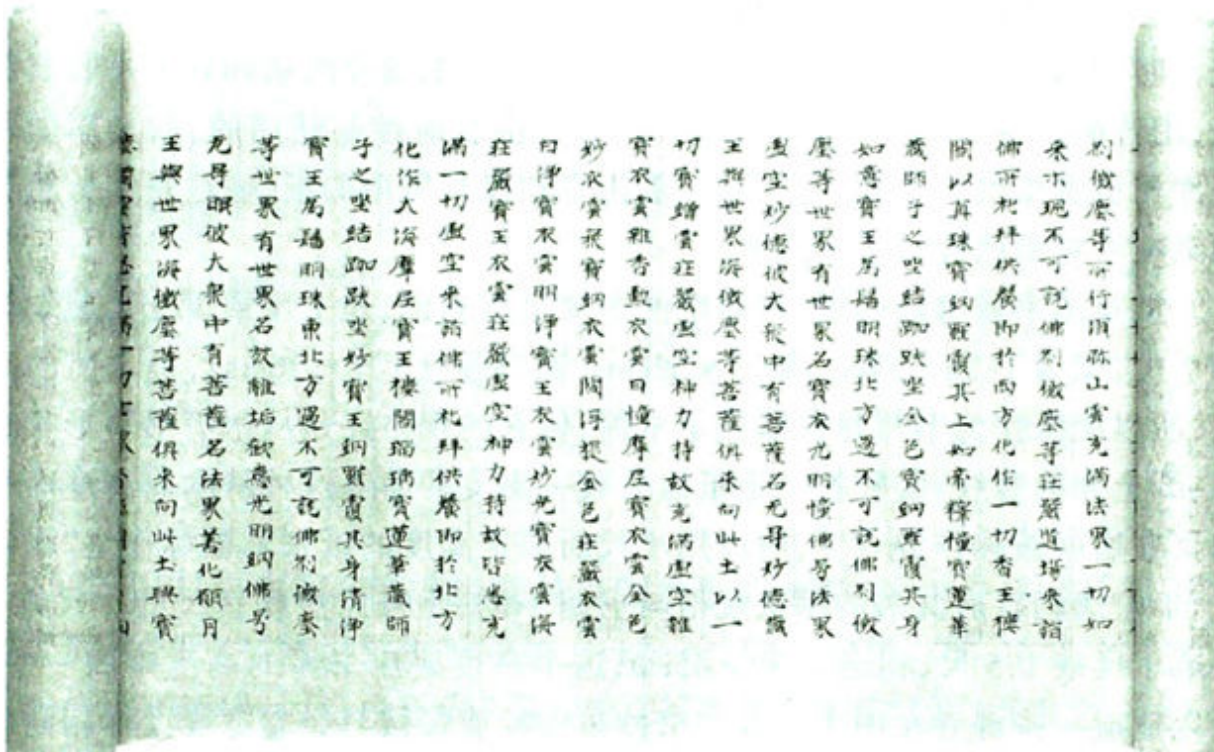 刹微塵等所行須弥山雲充滿法界一切如
来示現不可説佛刹微塵等莊嚴道場来詣
佛所礼拜供養即於西方化作一切香王樓
閣以真珠寶網羅覆其上如帝釋幢寶蓮華
藏師子之坐結跏趺坐金色寶網羅覆其身
如意寶王爲髻明珠北方過不可說佛刹微
塵等世界有世界名寶衣光明幢佛号法界
虚空妙德彼大衆中有菩薩名无㝵妙德藏
王與世界海微塵等菩薩俱来向此土以一
切寶繒雲莊嚴虚空神力持故充滿虚空雜
寶衣雲雜香熏衣雲日幢摩尼寶衣雲金色
妙衣雲衆寶網衣雲閻浮檀金色莊嚴衣雲
白淨寶衣雲明淨寶王衣雲妙光寶衣雲海
莊嚴寶王衣雲莊嚴虚空神力持故皆悉充
滿一切虚空来詣佛所礼拜供養即於北方
化作大海摩尼寶王樓閣瑠璃寶蓮華藏師
子之坐結跏趺坐妙寶王網羅覆其身清淨
寶王爲髻明珠東北方過不可說佛刹微塵
等世界有世界名放離垢歡憙光明網佛号
无㝵眼彼大衆中有菩薩名法界善化願月
王與世界海微塵等菩薩俱来向此土興寶